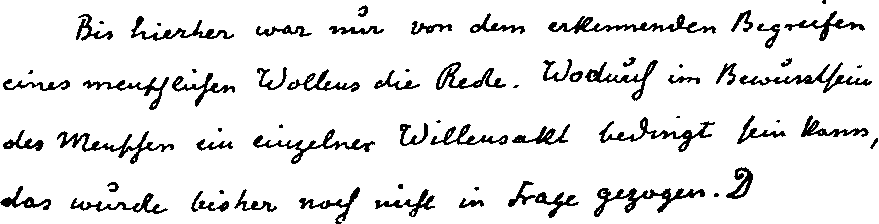 Bis hierher war nur von dem erkennenden Begreifen
eines menschlichen Wollens die Rede. Wodurch im Bewusstsein
des Menschen ein einzelner Willensakt bedingt sein kann,
das wurde bisher noch nicht in Frage gezogen. D